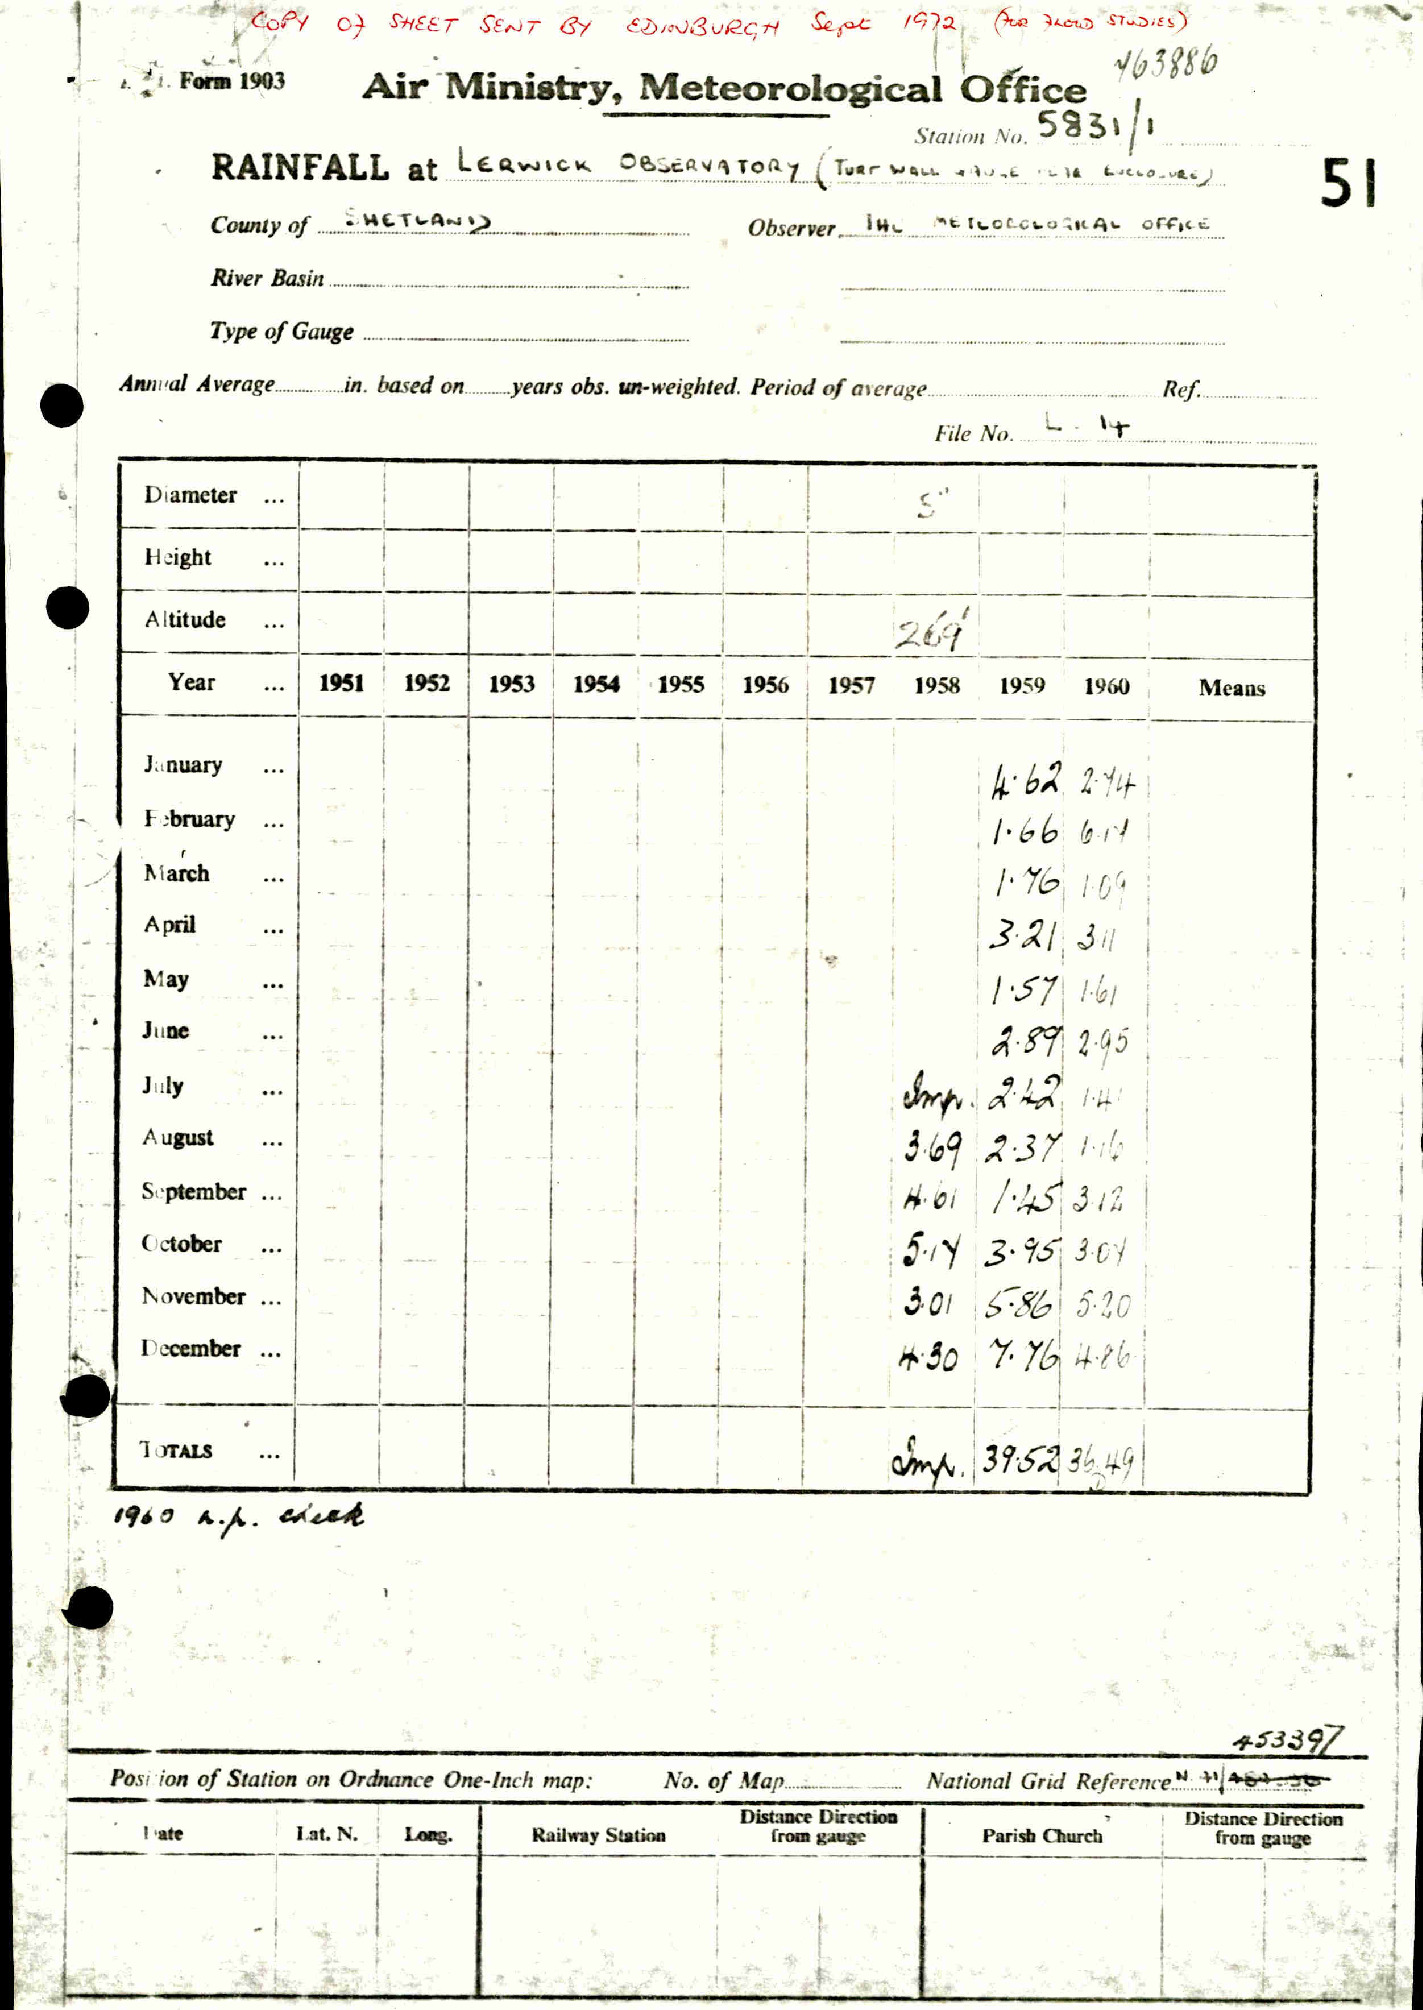 COPY OF SHEET SENT BY EDINBURGH Sept 1972 (FOR FLOOD STUDIES)
Form 1903
Air Ministry, Meteorological Office
463886
Station No. 5831/1
RAINFALL at LERWICK OBSERVATORY (TURF WALL GAUGE NEAR ENCLOSURE)
51
County of SHETLAND Observer THE METEOROLOGICAL OFFICE
River Basin
Type of Gauge
Annual Average in. based on years obs. un-weighted. Period of average Ref.
File No. L. 14
Diameter ... 5"
Height ...
Altitude ... 269'
Year ... 1951 1952 1953 1954 1955 1956 1957 1958 1959 1960 Means
January ... 4.62 2.74
February ... 1.66 6.17
March ... 1.76 1.09
April ... 3.21 3.11
May ... 1.57 1.61
June ... 2.89 2.95
July ... Imp. 2.42 1.41
August ... 3.69 2.37 1.16
September ... 4.61 1.45 3.12
October ... 5.17 3.95 3.07
November ... 3.01 5.86 5.20
December ... 4.30 7.76 4.86
TOTALS ... Imp. 39.52 36.49
1960 n.p. check
453397
Position of Station on Ordnance One-Inch map: No. of Map National Grid Reference N 41/
Date Lat. N. Long. Railway Station Distance Direction from gauge Parish Church Distance Direction from gauge